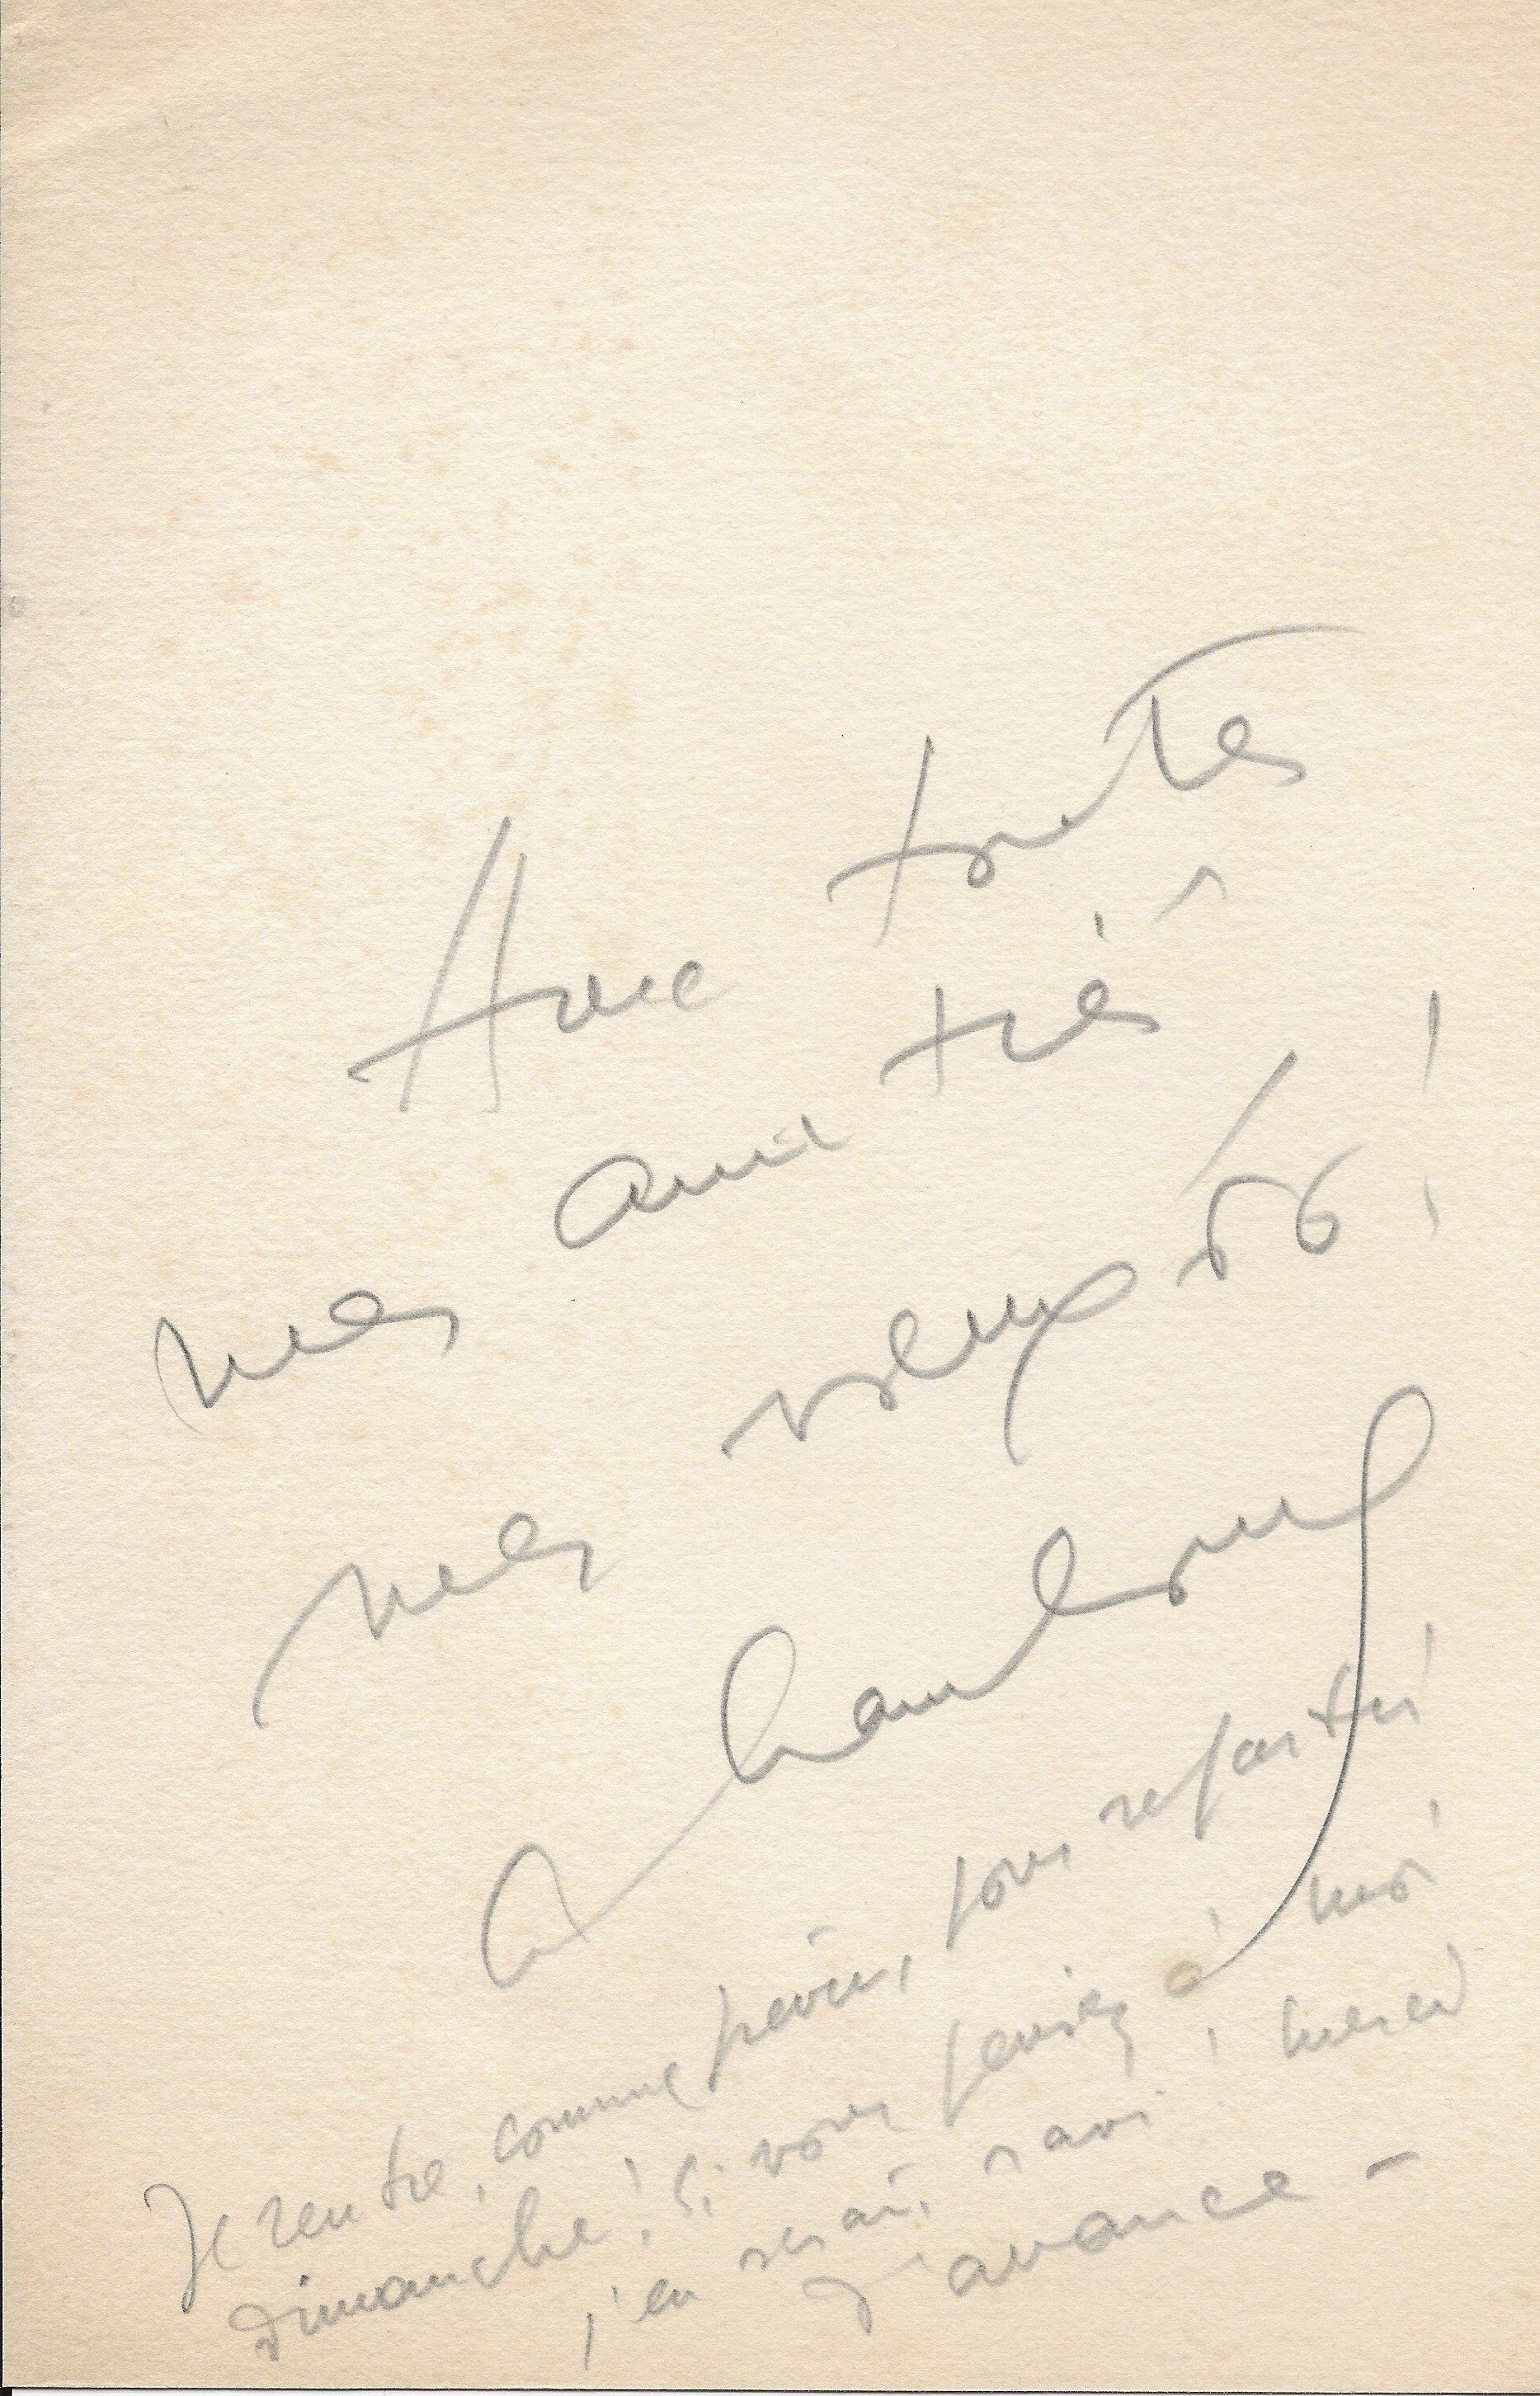 Avec toutes
mes amitiés
mes voeux 56 !
Je rentre, comme prévu, pour repartir
Dimanche ! Si vous pensez à moi
j'en serai ravi ! merci
d'avance —